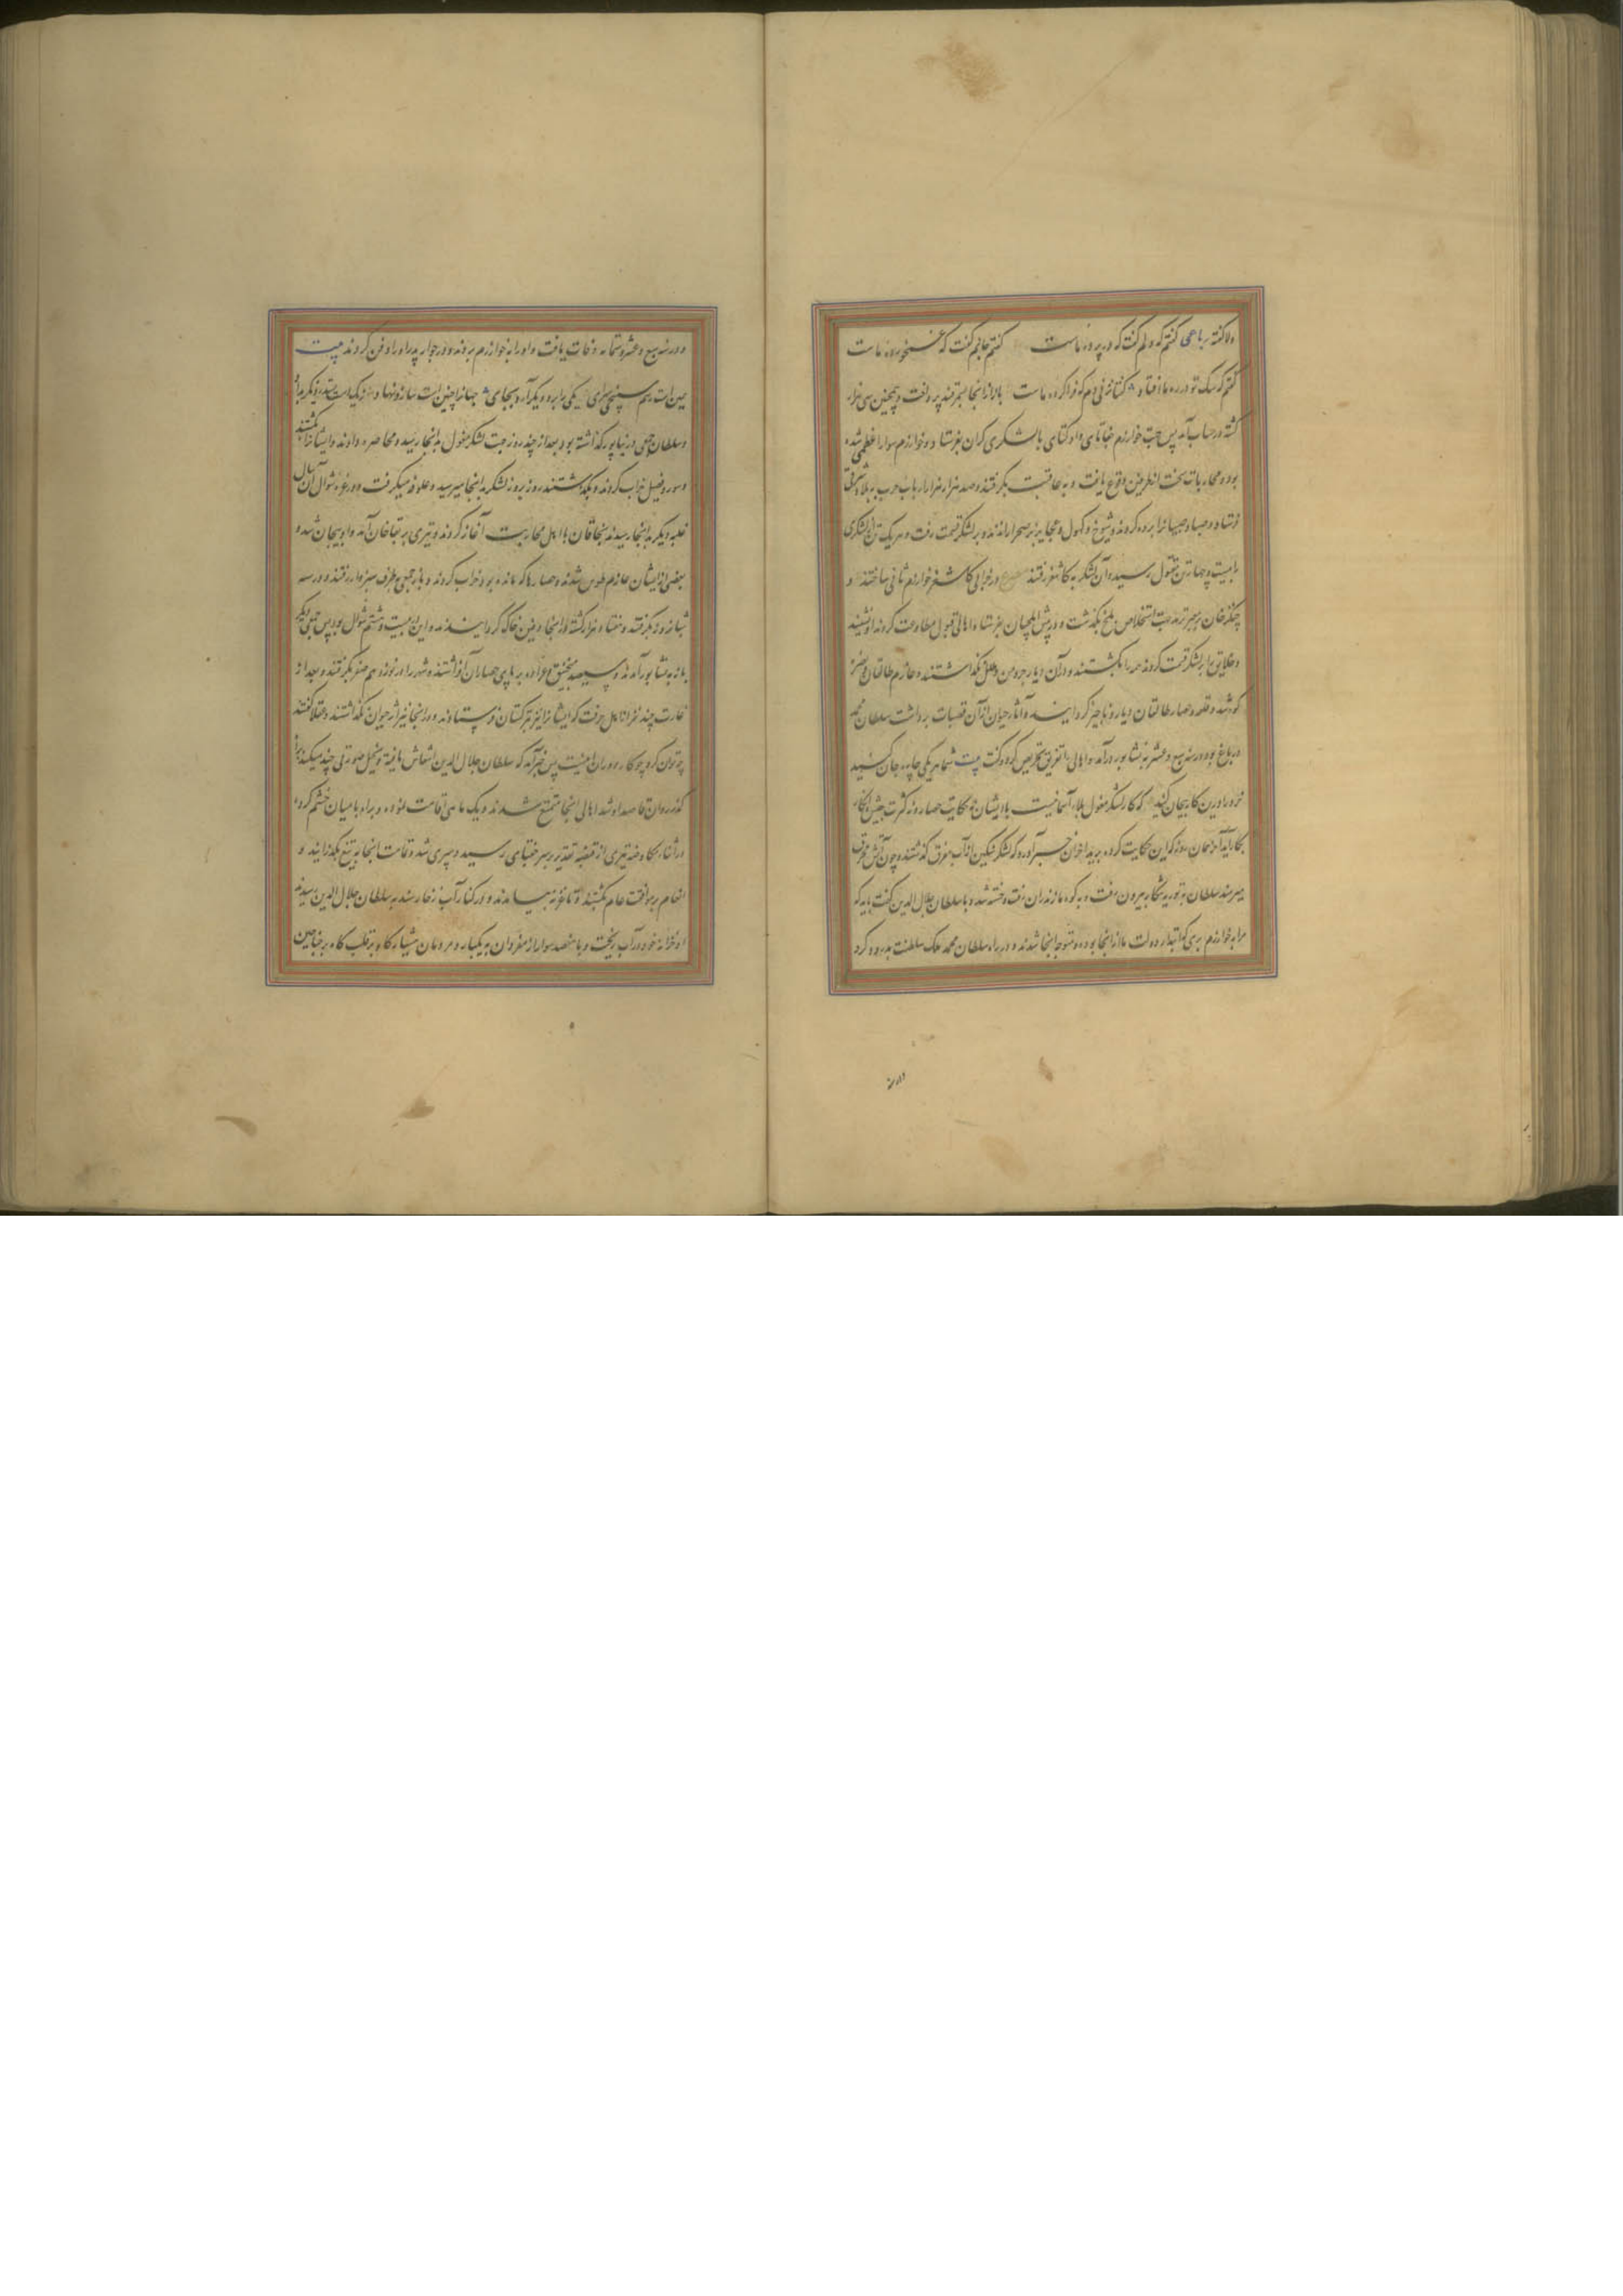 ولا کفته رباعی کفتم که دلم کفت که در پرده ماست کفتم جانم کفت که غمخورده ماست
کفتم که سک تو در ره ما افتاد کفتا مزنی دم که فرا کرده ماست باز از انجا بسمرقند پرداخت و همچنین سی هزار
کشته در حساب آمد پس جهت خوارزم جغاتای و اوکتای با لشکری کران بفرستاد و خوارزم سواد اعظمی شده
بود و محاربات سخت از طرفین وقوع یافت و به عاقبت بکرفتند و صد هزار هزار ارباب حرب به بلاد شرقی
فرستاد و صبایا و صبیانرا برده کردند و شیوخ و کهول و عجایز بر صحرا راندند و بر لشکر قسمت رفت و هر یک تن لشکری
را بیست و چهار تن مقتول رسید و آن لشکر به کاشغر رفتند در خرابی کاشغر خوارزم ثانی ساختند و
چنکز خان بر معبر ترمد جهت استخلاص بلخ بکذشت و در پیش ایلچیان بفرستاد اهالی قبول مطاوعت کردند او نشنید
و خلایق را بر لشکر قسمت کردند همه را بکشتند و در آن دیار چرمن و علل نکذاشتند و عازم طالقان
کوه شد و قلعه و حصار طالقان دیار و ناچیز کردانید و آثار حیوان از آن قصبات برداشت سلطان محمد
در بلخ بود در سنه سبع و عشر به نشابور درآمد و اهالی را تفریق تحریص کرد و کفت بیت شما هر یکی چاره جان کنید
خرد را درین کار پیچان کنید که کار لشکر مغول بلاء آسمانیست با ایشان حکایت حصار و از کثرت جیش انکار
بکار آید آخر همان روز که این حکایت کرد برید اخوان خبر آورد که لشکر چنکیز از آب مغرق کذشتند و چون آتش محرق
میرسند سلطان به توریه شکار بیرون رفت و به کوه مازندران رفت و خسته شد و با سلطان جلال الدین کفت باید که
مرا به خوارزم بری که ابتدا دولت ما از انجا بوده و متوجه انجا شدند و در راه سلطان محمد ملک سلطنت بدرود کرد
و در سنه
و در سنه سبع و عشر و ستمایه وفات یافت و او را به خوارزم بردند و در جوار پدر او را دفن کردند بیت
چنین است رسم سپنجی سرای یکی را برد دیکر آرد بجای جهانرا چنین است ساز و نهاد
و سلطان جمعی در نیشابور کذاشته بود بعد از چند روز جهت لشکر مغول به انجا رسید و محاصره دادند و ایشانرا بکشتند
و سور و فصیل خراب کردند و بکذاشتند روز بروز لشکر به اینجا میرسید و علوفه میکرفت و در غره شوال آن سال
غلبه دیکر به اینجا رسیدند بجاقان با اهل محاربت آغاز کردند و تیری بر تغاخان آمد و او بیجان شد و
بعضی از ایشان عازم طوس شدند و حصارها که مانده بود خراب کردند و باز جمعی به طرف سبزوار رفتند و در سه
شبانروز بکرفتند و هفتاد هزار کشته از انجا دفین خاک کردانیدند و این بیست و هشتم شوال بود پس تولی دیکر
باز به نشابور آمدند و سیصد منجنیق و عراده بر پای حصار آن افراشتند و شهر را در نوزدهم صفر بکرفتند و بعد از
غارت چند نفر از اهل حرفت که ایشانرا نیز به ترکستان فرستادند و در انجا نیز اثر حیوان نکذاشتند و عقلا کفتند
چو توان کرد چو کار دوران اینست پس خبر آمد که سلطان جلال الدین انتعاش یافته و تخیل صورتی چند میکند
کذر روان قاصد او شد اهالی انجا متمنع شدند و یک ماهی اقامت نمود و براه بامیان خشم کرد
در اثناء نکاه ضد تیری از قبضه تقدیر بر سر جغتای رسید و سپری شد و تمامت انجا به تیغ بکذرانید و
انعام بر موافقت عام بکشتند تا به غزنه بیامدند و در کنار آب زخار سند به سلطان جلال الدین رسیدند
او خزانه خود در آب ریخت و با هفصد سوار از مفردان به یکبار و مردمان بسیار کاه بر قلب کاه بر جناحین